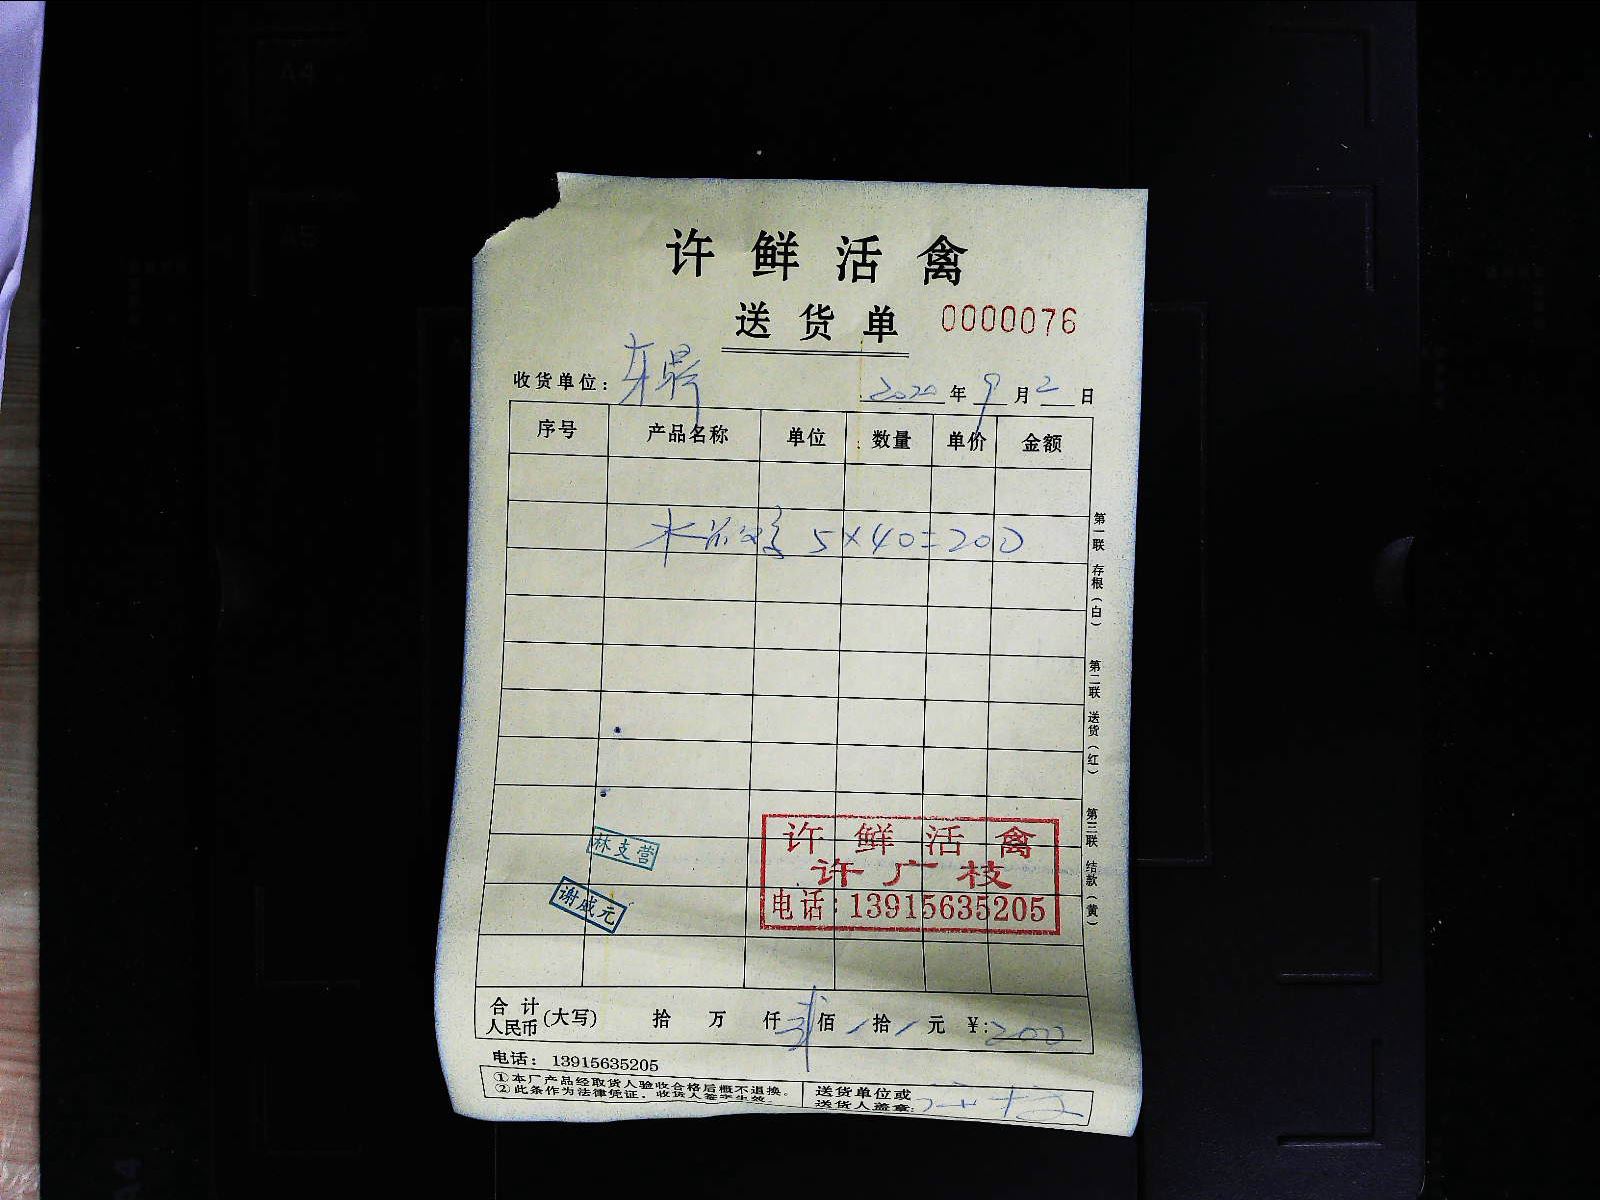 许鲜活禽
送货单 0000076
收货单位: 东鼎 2020年9月2日
序号 产品名称 单位 数量 单价 金额
5×40=200
第一联 存根（白） 第二联 送货（红） 第三联 结款（黄）
许鲜活禽
许广枝
电话:13915635205
林支营
谢威元
合计人民币(大写) 拾 万 仟 贰佰 / 拾 / 元 ¥:200
电话: 13915635205
①本厂产品经取货人验收合格后概不退换。
②此条作为法律凭证，收货人签字生效。
送货单位或
送货人盖章:
A4
A5